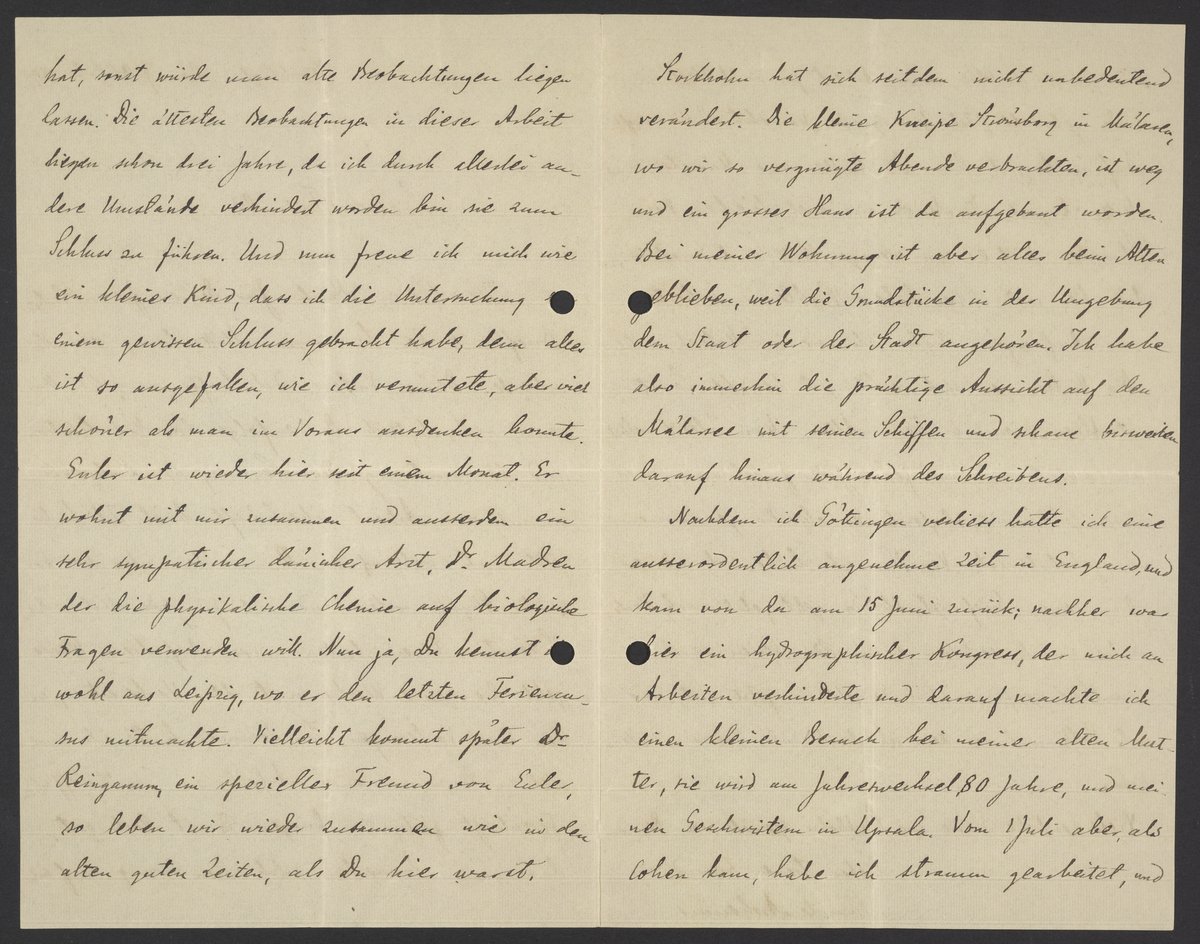 hat, sonst würde man alte Beobachtungen liegen
lassen. Die ältesten Beobachtungen in dieser Arbeit
liegen schon drei Jahre, da ich durch allerlei an-
dere Umstände verhindert worden bin sie zum
Schluss zu führen. Und nun freue ich mich wie
ein kleines Kind, dass ich die Untersuchung
einem gewissen Schluss gebracht habe, denn alles
ist so ausgefallen, wie ich vermutete, aber viel
schöner als man im Voraus ausdenken konnte.
Euler ist wieder hier seit einem Monat. Er
wohnt mit mir zusammen und ausserdem ein
sehr sympatischer dänicher Arzt, Dr. Madsen
der die physikalische Chemie auf biologische
Fragen verwenden will. Nun ja, Du kennst
wohl aus Leipzig, wo er den letzten Ferienkur-
sus mitmachte. Vielleicht kommt später Dr.
Reinganum, ein spezieller Freund von Euler,
so leben wir wieder zusammen wie in den
alten guten Zeiten, als Du hier warst.
Stockholm hat sich seitdem nicht unbedeutend
verändert. Die kleine Kneipe Strömsborg in Mälaren,
wo wir so vergnügte Abende verbrachten, ist weg
und ein grosses Haus ist da aufgebaut worden.
Bei meiner Wohnung ist aber alles beim Alten
geblieben, weil die Grundstücke in der Umgebung
dem Staat oder der Stadt angehören. Ich habe
also immerhin die prächtige Aussicht auf den
Mälarsee mit seinen Schiffen und schaue bisweilen
darauf hinaus während des Schreibens.
Nachdem ich Göttingen verliess hatte ich eine
ausserordentlich angenehme Zeit in England, und
kam von da am 15 Juni zurück; nachher war
hier ein hydrographischer Kongress, der mich an
Arbeiten verhinderte und darauf machte ich
einen kleinen Besuch bei meiner alten Mut-
ter, sie wird am Jahreswechsel 80 Jahre, und mei-
nen Geschwistern in Upsala. Vom 1 Juli aber, als
Cohen kam, habe ich stramm gearbeitet, und